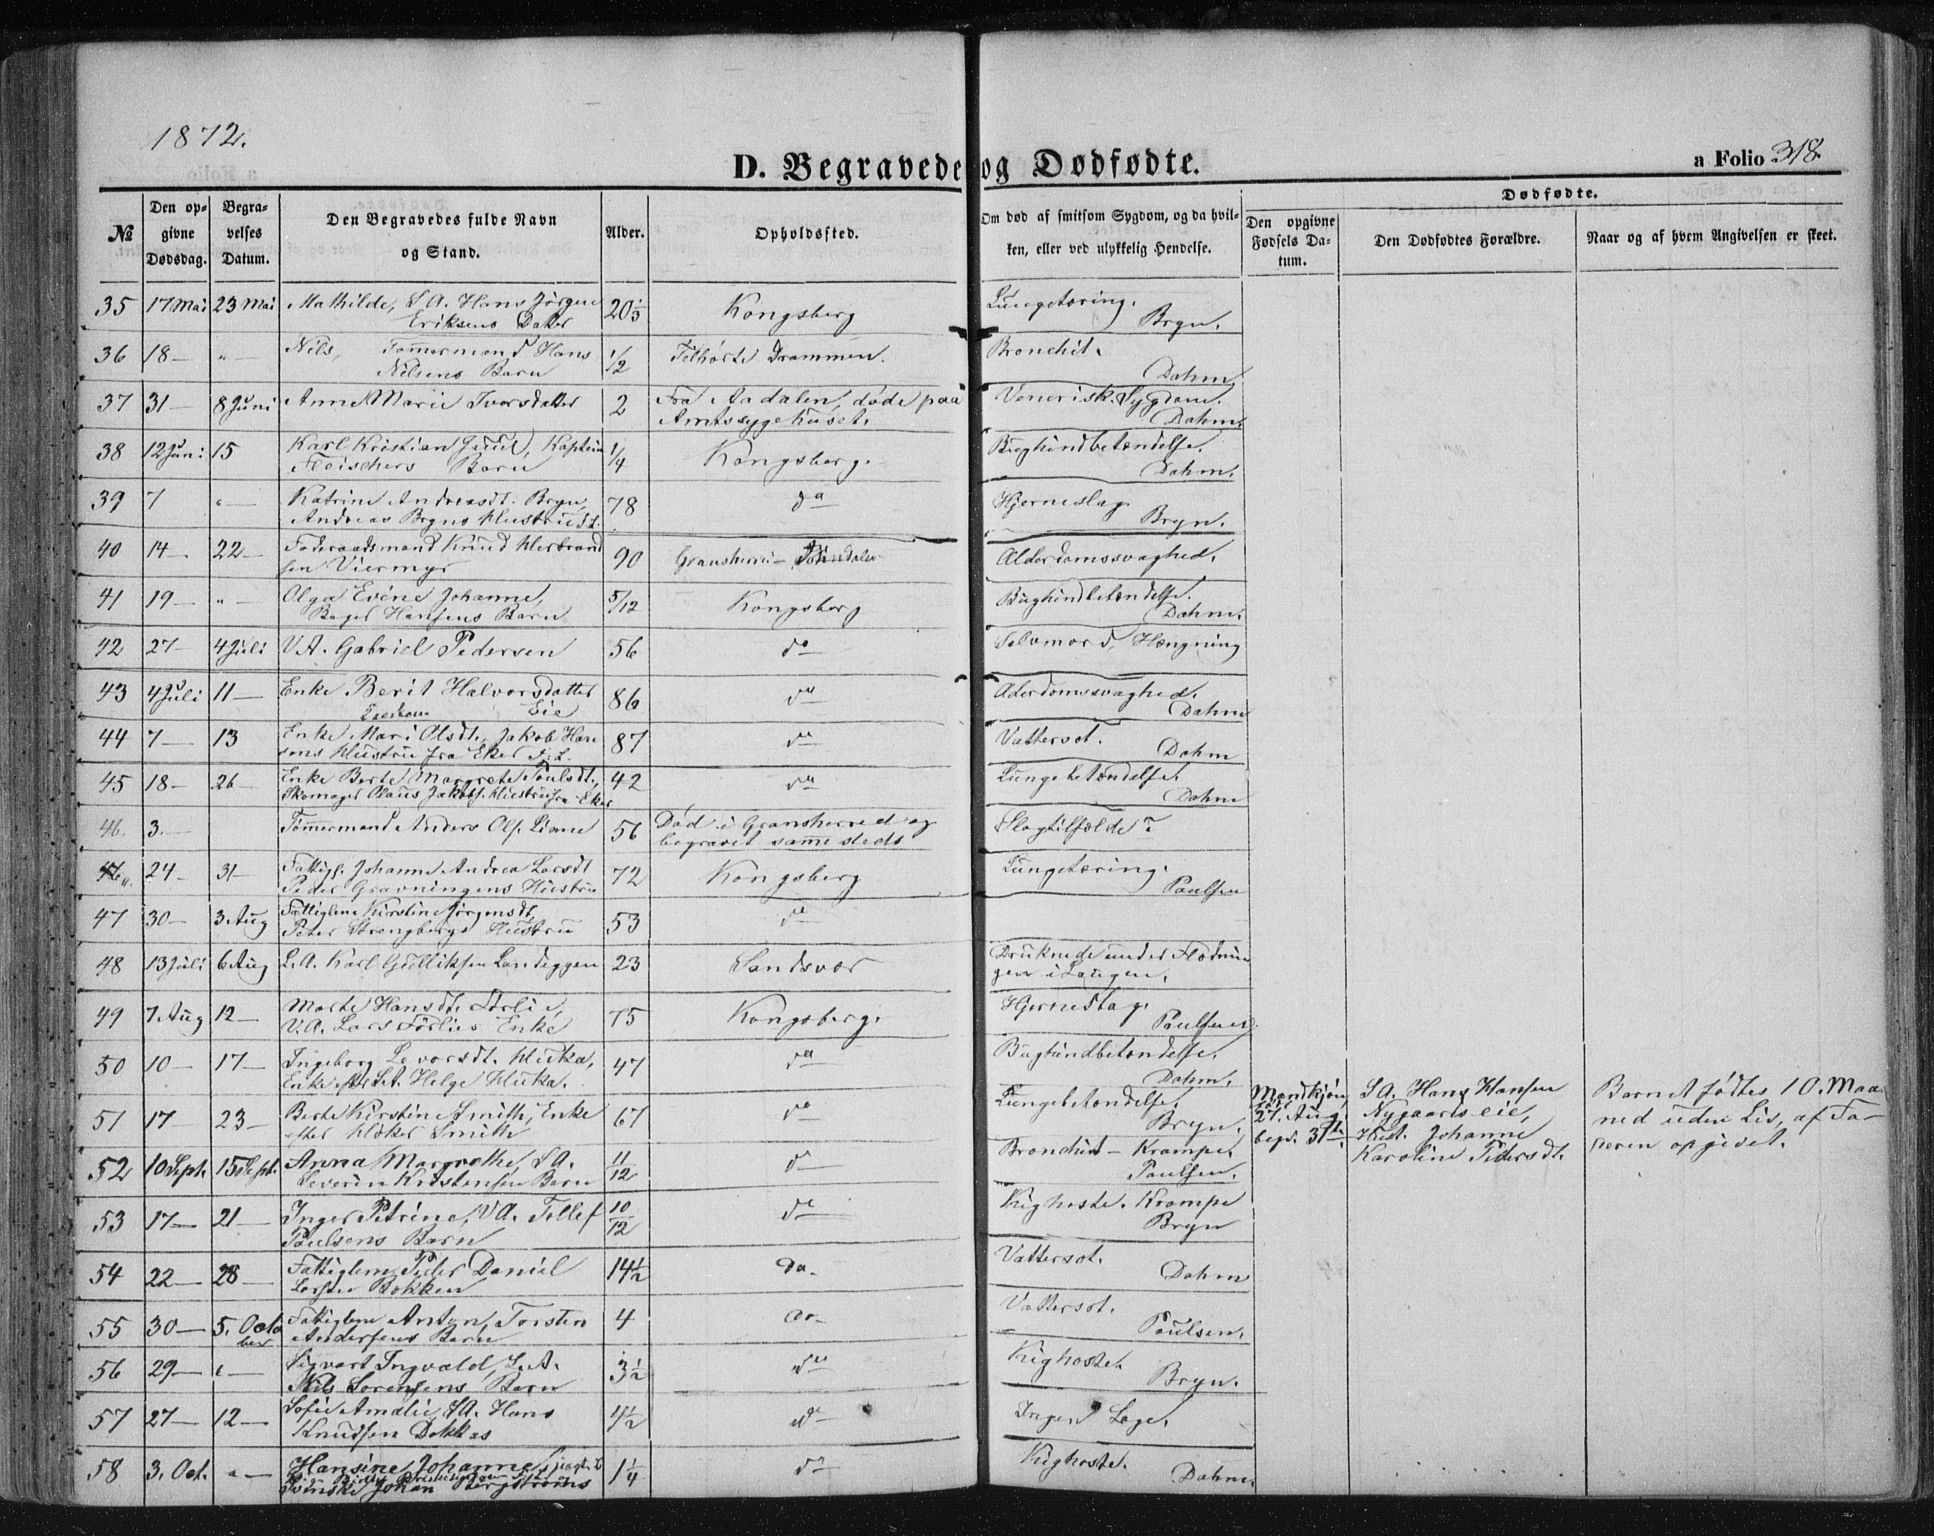 1872.
D. Begravede og Dødfødte.
a Folio 318.
№
Den op-
givne
Dødsdag.
Begra-
velses
Datum.
Den Begravedes fulde Navn
og Stand.
Alder.
Opholdssted.
Om død af smitsom Sygdom, og da hvil-
ken, eller ved ulykkelig Hendelse.
Dødfødte.
Den opgivne
Fødsels Da-
tum.
Den Dødfødtes Forældre.
Naar og af hvem Angivelsen er skeet.
35 17 Mai 23 Mai Mathilde, S.A. Hans Jörgen 20⅓ Kongsberg Lungetæring.
Eriksens Datter Bryn.
36 18 — „ — Nils, Tømmermand Hans ½ Tilhørte Drammen. Bronchit.
Nilsens Barn Dahm
37 31 — 8 Juni Anne Marie Iversdatter 2 Fra Aadalen, døde paa Venerisk Sygdom.
Amtssygehuset. Dahm.
38 12 Juni 15 Karl Kristian Juul, Kaptein ¼ Kongsberg. Bughindbetændelse.
Fleischers Barn Dahm.
39 7 „ — Katrine Andreasdt. Bryn, 78 da Hjerneslag
Andreas Bryns Hustru Bryn.
40 14 — 22 — Föderaadsmand Knud Herbrand 90 Gransherred Alderdomssvaghed.
sen Viermyr
41 19 — „ — Olga Evine Johanne, 5/12 Kongsberg Bughindbetændelse.
Bager Hansens Barn Dahm.
42 27 — 4 Juli V.A. Gabriel Pedersen 56 da Selvmord, Hængning
43 4 Juli 11 — Enke Berit Halvorsdatter 86 da Alderdomssvaghed.
Eie Dahm
44 7 — 13 Enke Mari Olsdt., Jakob Han 87 da Vattersot.
sens Hustru fra Eker Dahm
45 18 — 26 — Enke Berte Margrete Poulsdt., 42 da Lungebetændelse.
Skomager Olaus Jakobs. Hustru fra Eker Dahm
46. 3. — Tømmermand Anders Ols. Lieme 56 Død i Gransherred og Slagtilfælde?
begravet sammesteds
46 24 — 31 — Fattigl. Johanne Andrea Larsdt 72 Kongsberg Lungetæring.
Peder Gravningens Hustru Paulsen
47 30 — 3 Aug Fattiglem Kirstine Jörgensdt, 53 da
Peter Strengbergs Hustru
48 13 Juli 6 Aug L.A. Karl Gulliksen Landeggen 23 Sandsvær Druknede under Flødnin
gen i Laugen.
49 7 Aug 12 — Marte Hansdt. Förlie, 75 Kongsberg. Hjerneslag.
V.A. Lars Förlies Enke Paulsen
50 10 — 17 — Ingeborg Levorsdt. Huka, 47 da Bughindbetændelse.
Enke eft. S.A. Helge Huka. Dahm.
51 17 — 23 — Berte Kirstine Smith, Enke 67 da Lungebetændelse,
efter Høker Smith Bryn.
Mandkjøn
27. Aug.
begr. 31te
S.A. Hans Hansen
Nygaardseie,
Hust. Johanne
Karoline Pedersdt.
Barnet fødtes 10. Maa
ned uden Liv, af Fa-
deren opgivet.
52 10 Sept. 15 Sept. Anna Margrethe, S.A. 11/12 da Bronchit — Krampe,
Severin Kristensen Barn Paulsen.
53 17 — 21 — Inger Petrine, V.A. Tollef 10/12 da Kighoste. Krampe
Paulsens Barn Bryn
54 22 — 28 — Fattiglem Peder Daniel 14½ da. Vattersot.
Larsen Bakken Dahm
55 30 — 5. Octo Fattiglem Anton, Torsten 4 da Vattersot.
ber Andersens Barn Poulsen.
56 29 — „ — Sigvart Ingvald, L.A. 3½ da Kighoste.
Nils Sorensens Barn Bryn.
57 27 — 12 — Sofie Amalie, S.A. Hans 4½ da Ingen Læge.
Knudsen Dokkas
58 3. Oct. „ — Hansine Johanne, 1¼ da Kighoste.
Svenske Johan Bergstrøms Dahm.